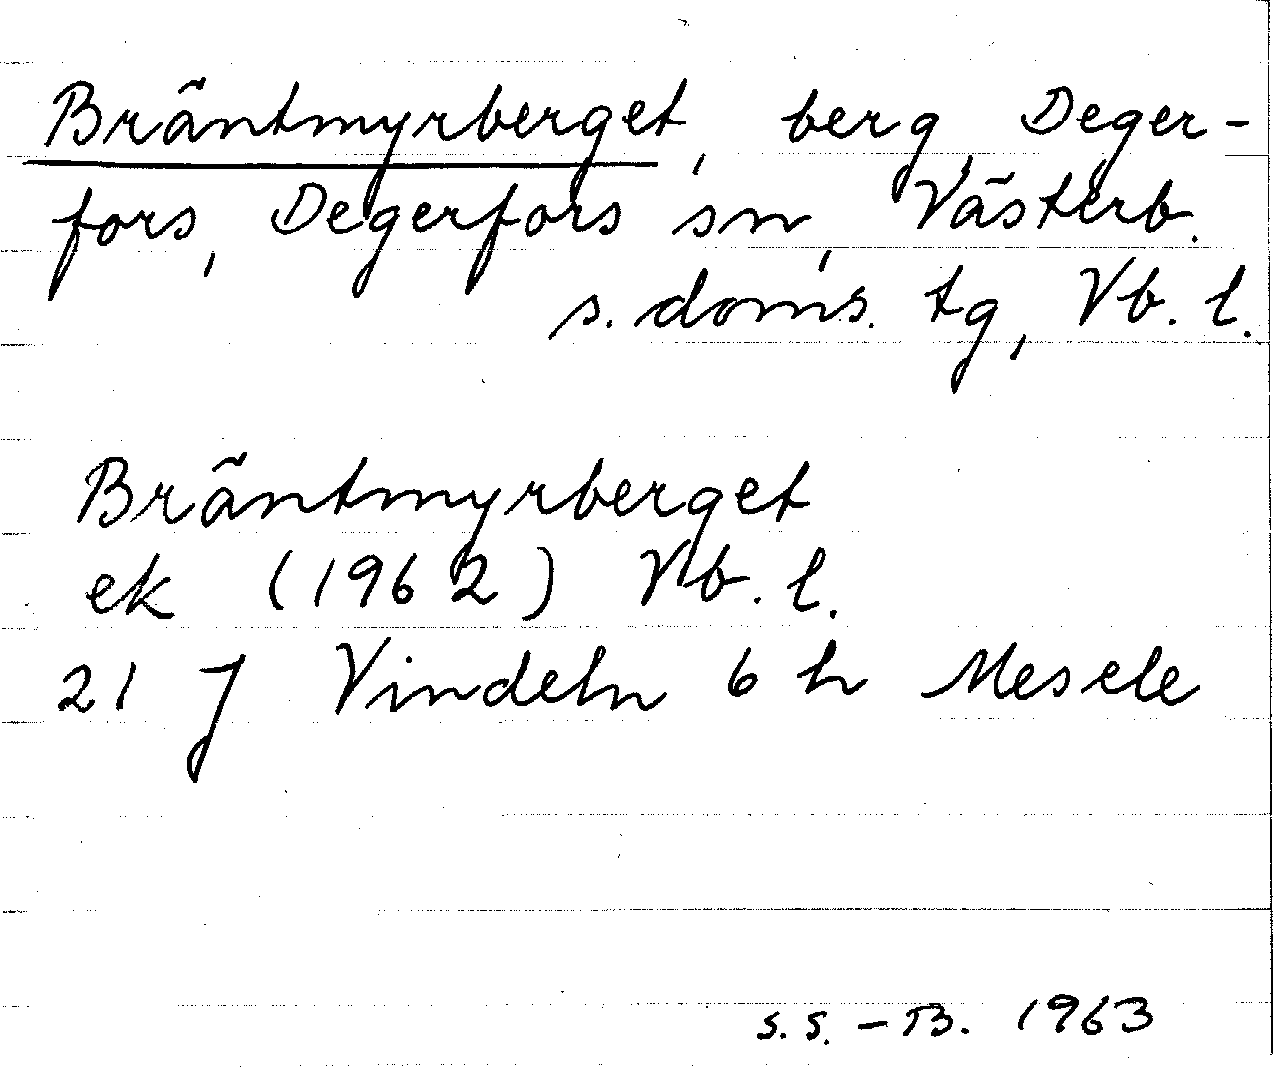 Bräntmyrberget, berg, Deger-
fors, Degerfors sn, Västerb.
s. doms. tg, Vb. l.
Bräntmyrberget
ek (1962) Vb. l.
21 J Vindeln 6 h Mesele
S. S. - B. 1963